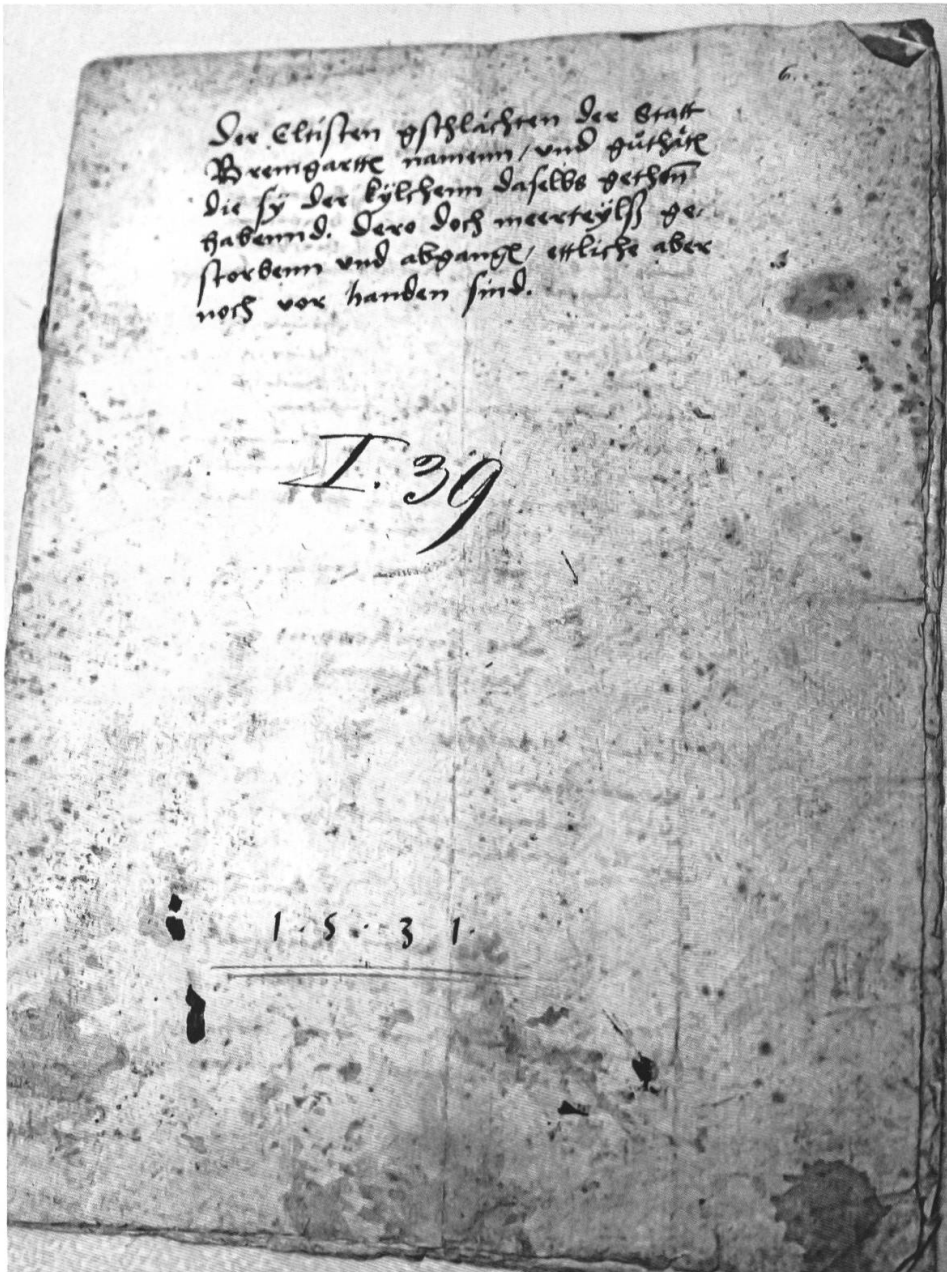 6.
Der Eltisten gschlächten der Statt
Bremgartten namenn / und gůthäten
die sy der kÿlchenn daselbs gethon̄
habennd. Dero doch meerteÿlß ge-
storbenn und abgangen / ettliche aber
noch vor handen sind.
I. 39
1 · 5 · 3 1 ·